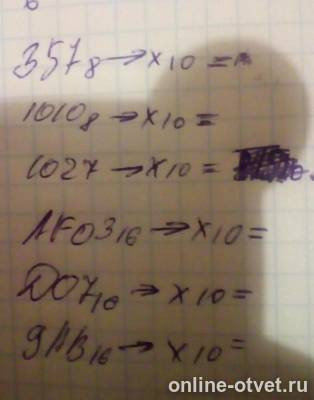 357₈ → x₁₀ =
1010₈ → x₁₀ =
1027 → x₁₀ =
AF03₁₆ → x₁₀ =
D07₁₆ → x₁₀ =
9AB₁₆ → x₁₀ =
online-otvet.ru